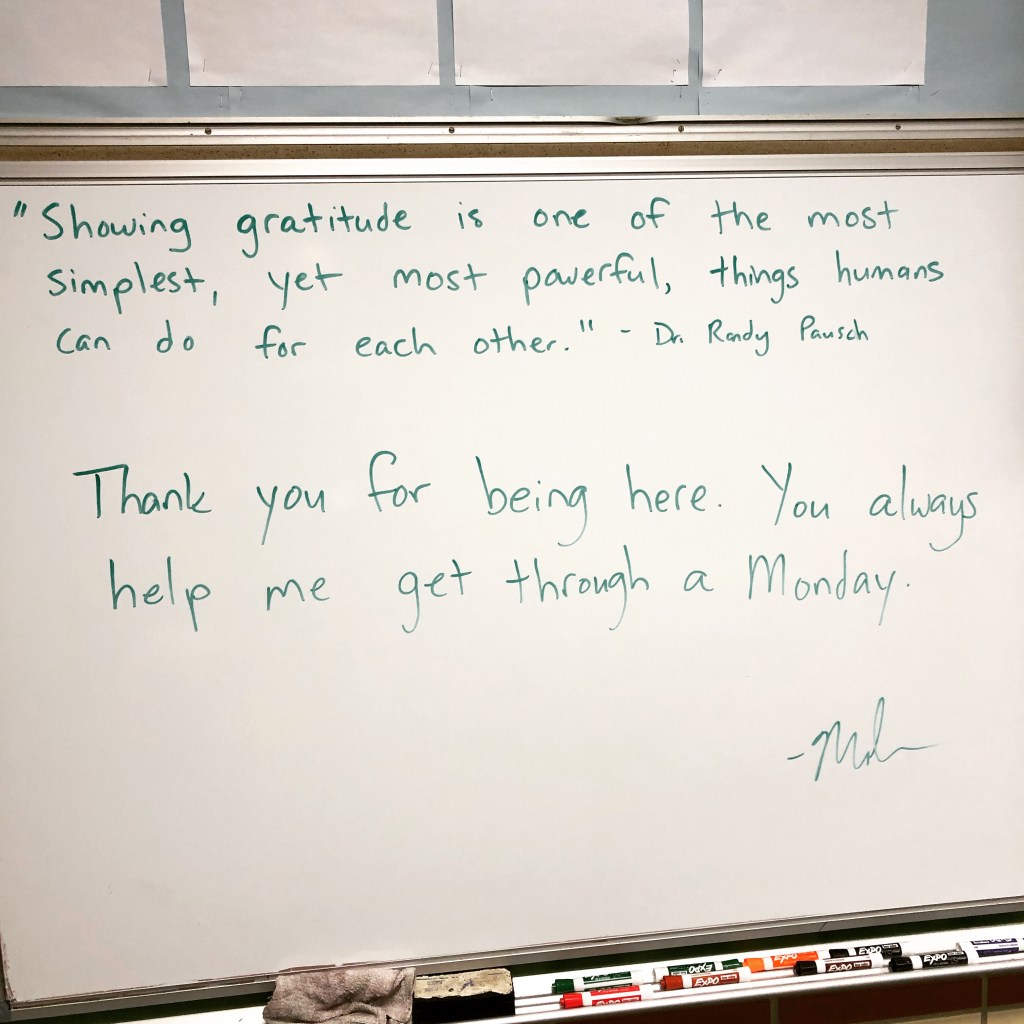 "Showing gratitude is one of the most
simplest, yet most powerful, things humans
can do for each other." - Dr. Randy Pausch
Thank you for being here. You always
help me get through a Monday.
EXPO
EXPO
EXPO
EXPO
EXPO
EXPO
EXPO